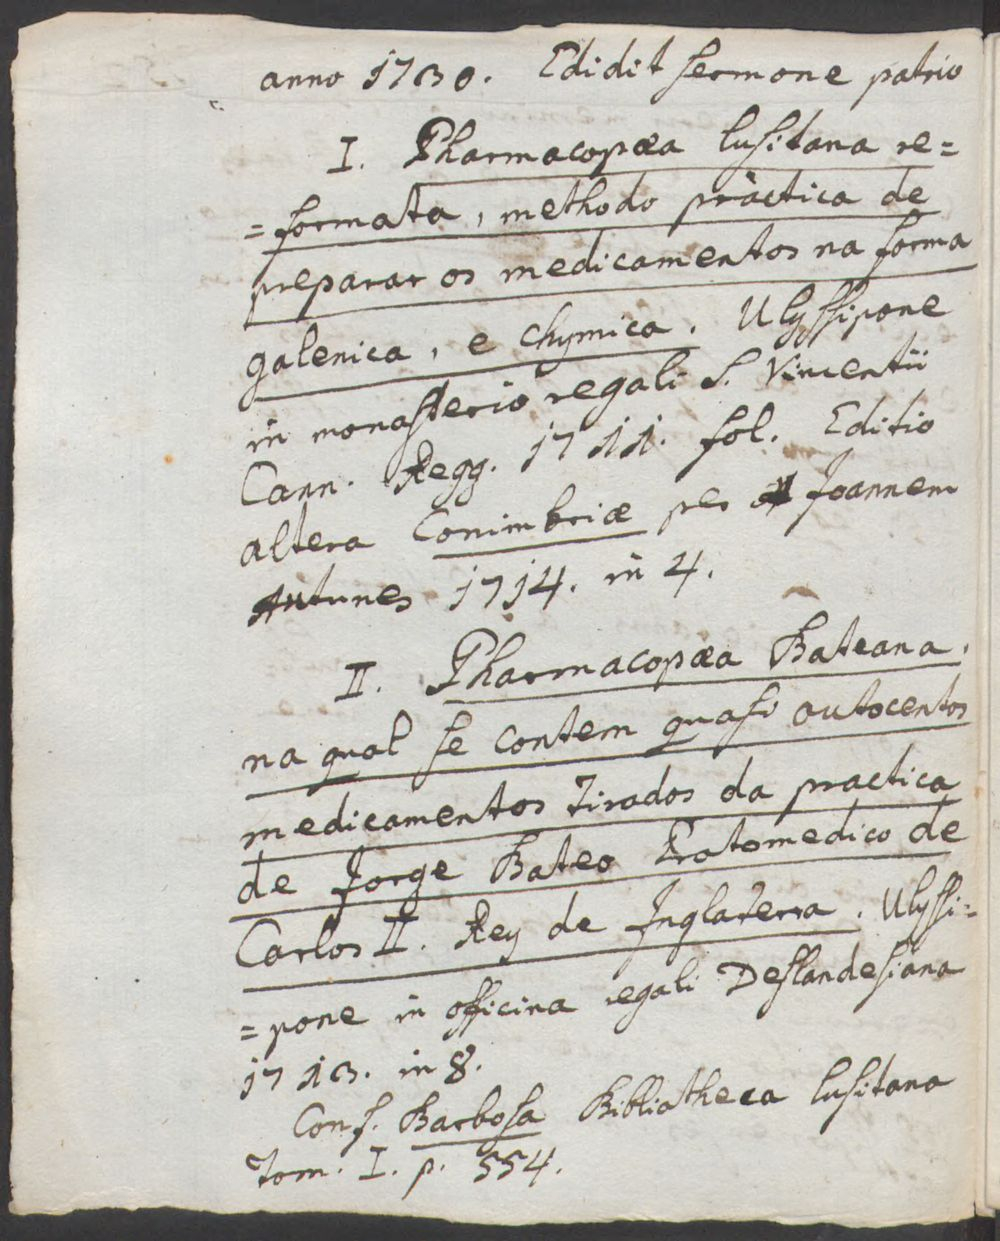 anno 1730. Edidit sermone patrio
I. Pharmacopæa lusitana re=
=formata, methodo pràctica de
preparar os medicamentos na forma
galenica, e chymica. Ulyssipone
in monasterio regali S. Vincentii
Cann. Regg. 1711. fol. Editio
altera Conimbriæ per Joannem
Antunes 1714. in 4.
II. Pharmacopæa Bateana,
na qual se contem quasi outocentos
medicamentos tirados da practica
de Jorge Bateo Protomedico de
Carlos II. Rey de Inglaterra. Ulyssi=
=pone in officina regali Deslandesiana
1713. in 8.
Conf. Barbosa Bibliotheca lusitana
tom. I. p. 554.